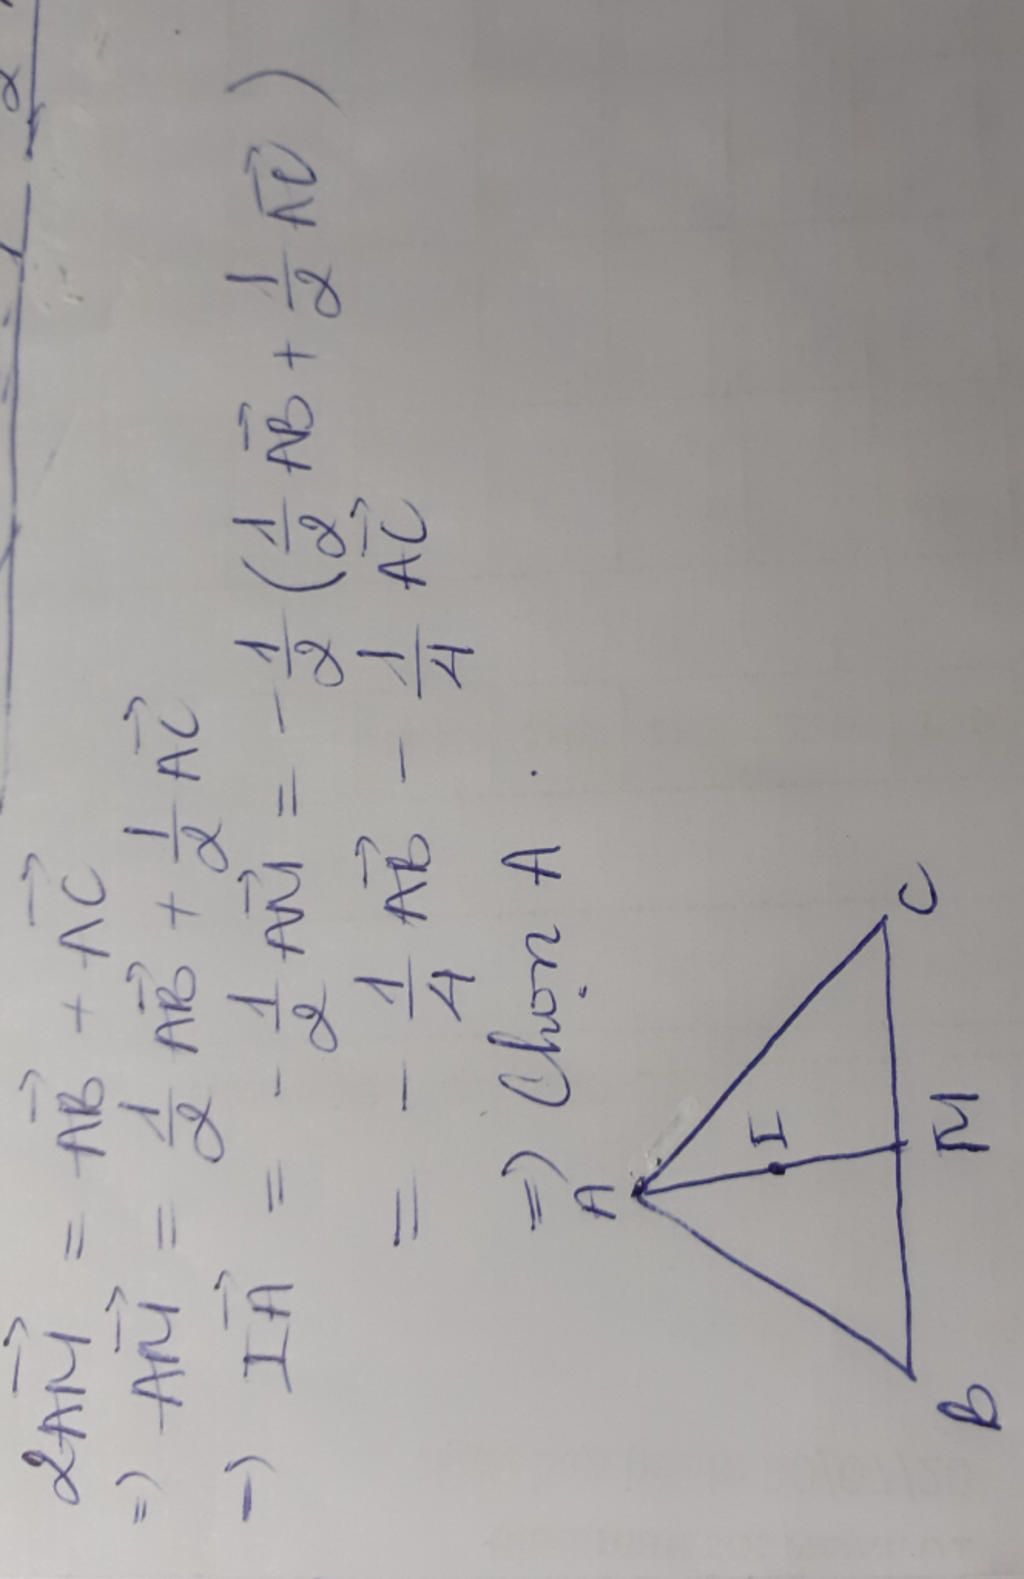 2AM→ = AB→ + AC→
=) AM→ = 1/2 AB→ + 1/2 AC→
-) IA→ = - 1/2 AM→ = - 1/2 (1/2 AB→ + 1/2 AC→)
= - 1/4 AB→ - 1/4 AC→
=) Chọn A.
A
I
B
M
C